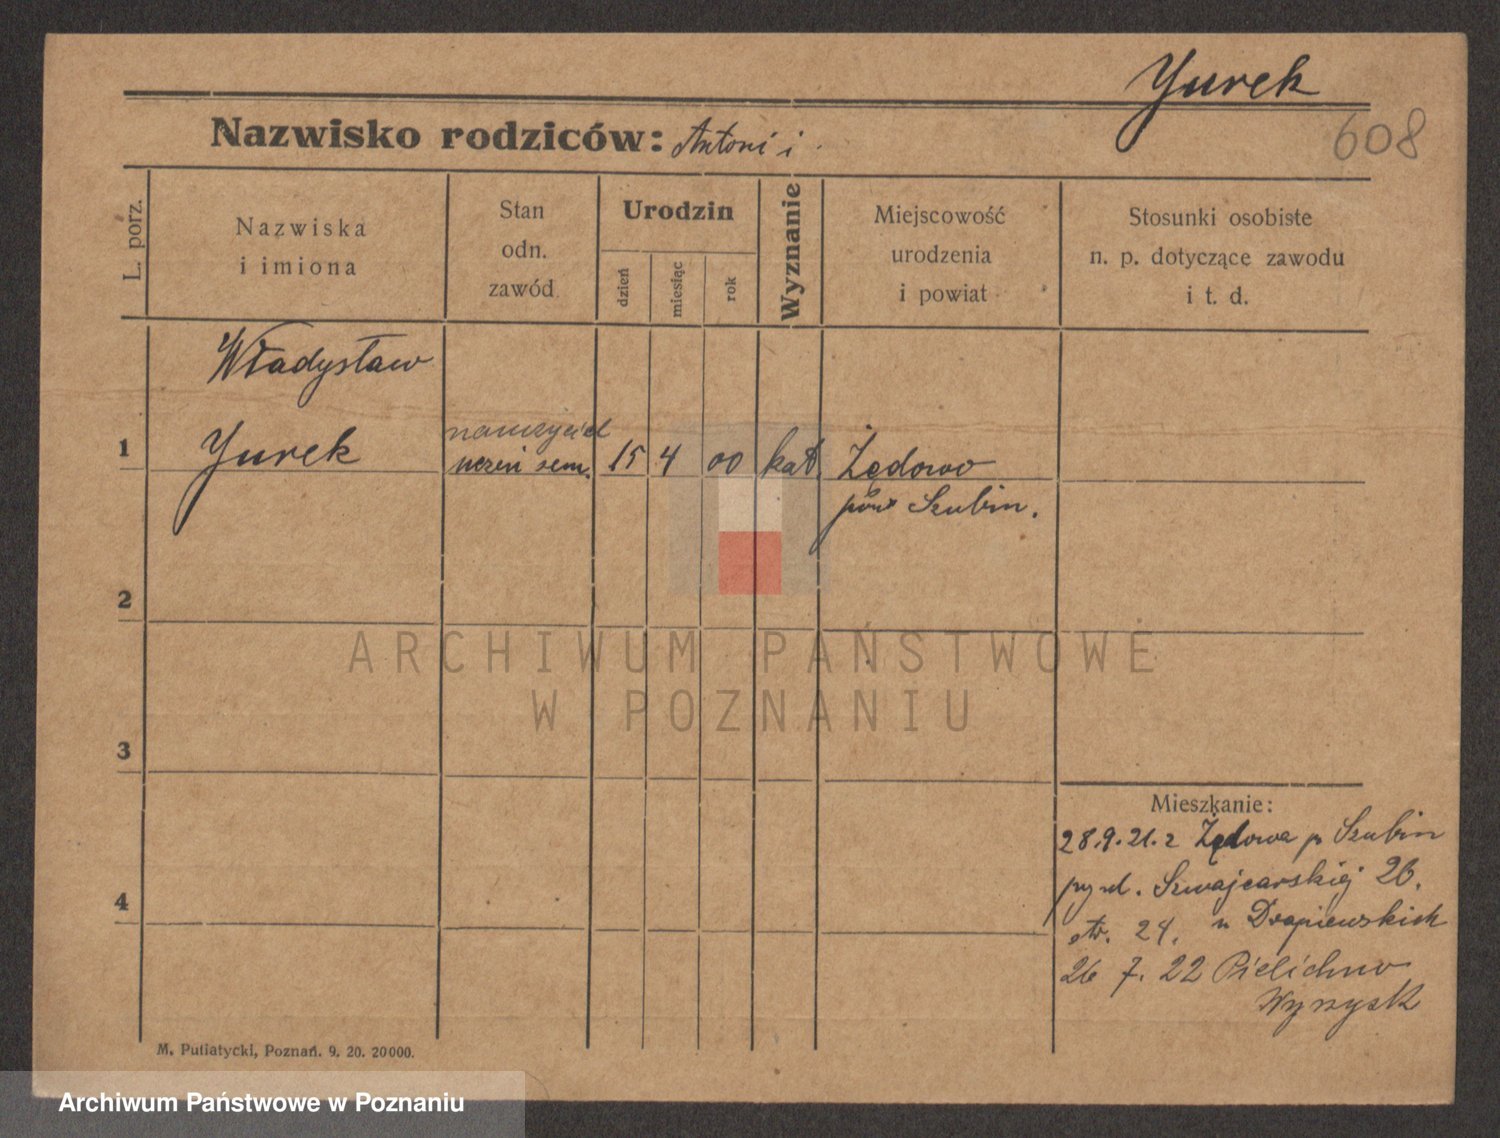 Yurek
608
Nazwisko rodziców: Antoni i
L. porz.
Nazwiska
i imiona
Stan
odn.
zawód
Urodzin
dzień
miesiąc
rok
Wyznanie
Miejscowość
urodzenia
i powiat
Stosunki osobiste
n. p. dotyczące zawodu
i t. d.
Władysław
nauczyciel
1 Yurek uczeń sem. 15 4 00 kat. Żędowo
pow Szubin.
2
ARCHIWUM PAŃSTWOWE
W POZNANIU
3
Mieszkanie:
28.9.21. z Żędowa p Szubin
Szwajcarskiej 26.
4
str. 24. u Drapiewskich
26 7. 22 Pielichno
Wyrzysk
M. Putiatycki, Poznań. 9. 20. 20000.
Archiwum Państwowe w Poznaniu